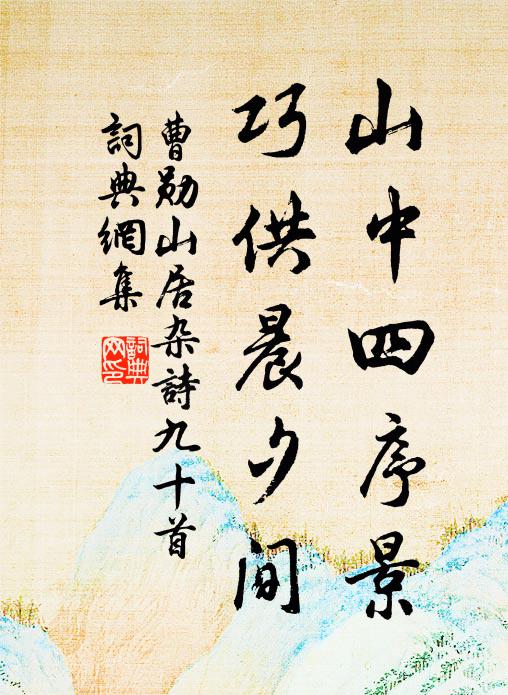 山中四序景
巧供晨夕间
曹勋山居杂詩九十首
詞典網集
詞典
网印